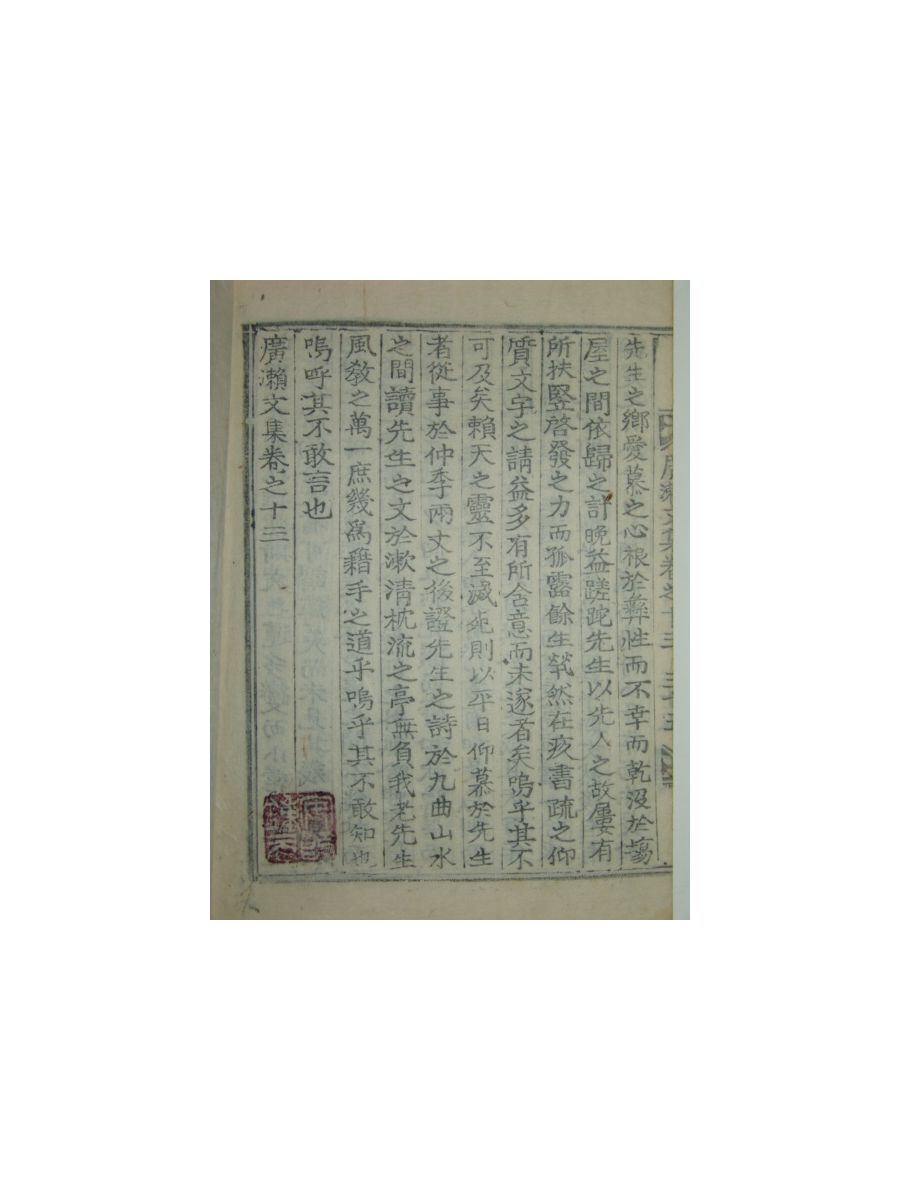 廣瀨文集卷之十三
先生之鄉愛慕之心根於彜性而不幸而乾沒於場
屋之間依歸之計晩益蹉跎先生以先人之故屢有
所扶竪啓發之力而孤露餘生煢然在疚書疏之仰
質文字之請益多有所含意而未遂者矣嗚乎其不
可及矣賴天之靈不至滅死則以平日仰慕於先生
者從事於仲季兩丈之後證先生之詩於九曲山水
之間讀先生之文於漱清枕流之亭無負我老先生
風敎之萬一庶幾爲藉手之道乎嗚乎其不敢知也
嗚呼其不敢言也
廣瀨文集卷之十三